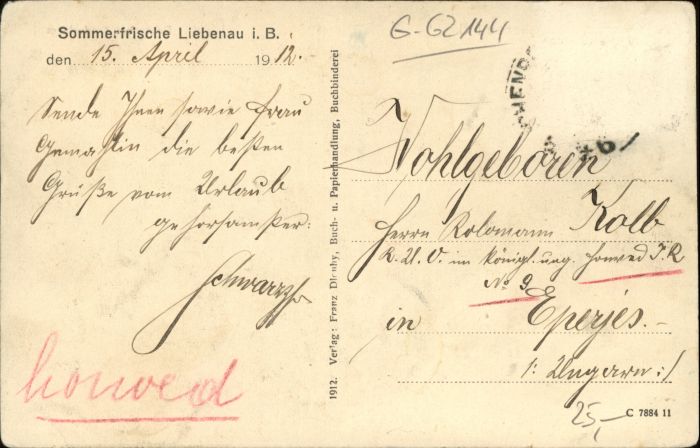 Sommerfrische Liebenau i. B.
den 15. April 1912.
Sende Ihnen sowie Frau
Gemahlin die besten
Grüße vom Urlaub
gehorsamster:
honved
1912. Verlag: Franz Dienby, Buch- u. Papierhandlung, Buchbinderei
G-GZ 144
Wohlgeboren
Herrn Kolomann Kolb
R. U. O. im königl. ung. Honved I. R
No 9
in Eperjes.-
/: Ungarn :/
25,-
C 7884 11